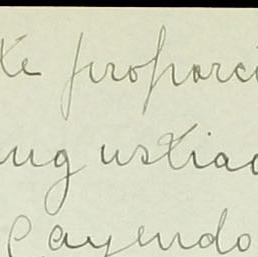 te proporci
ang ustiad
Cayendo